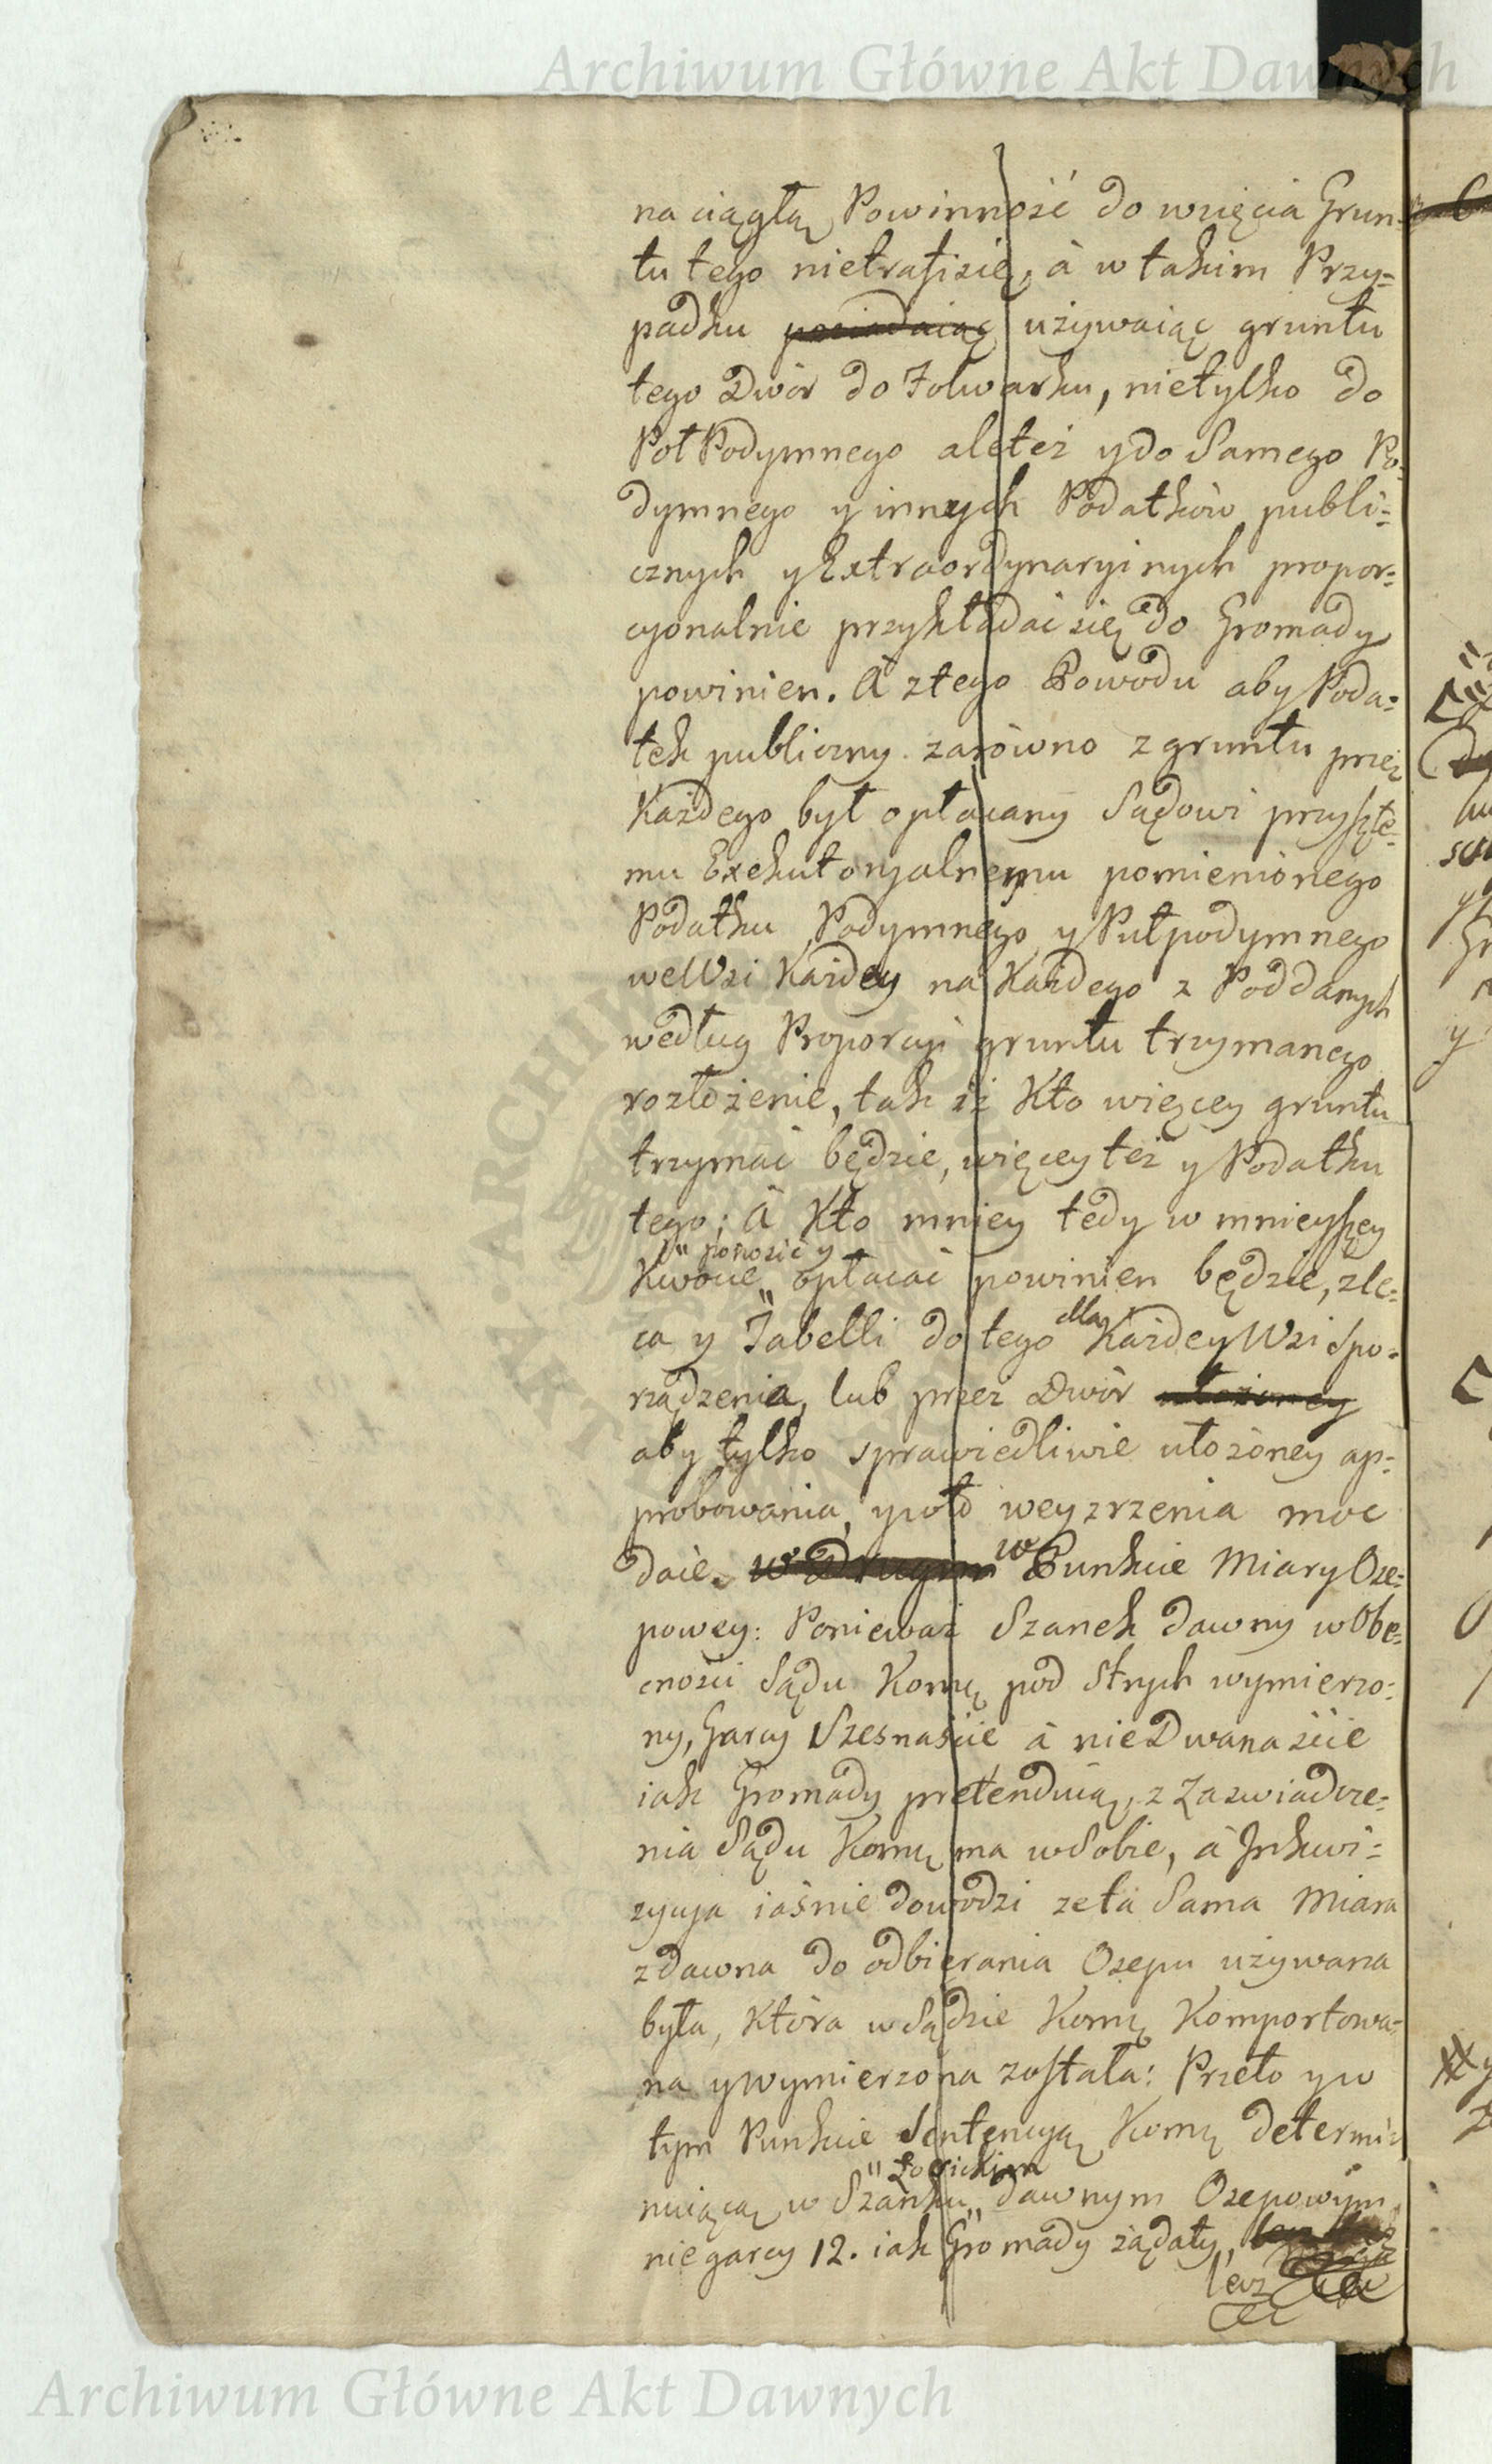 Archiwum Główne Akt Dawnych
na ciągłą Powinność do wzięcia Grun-
tu tego nietrafi się, à w takim Przy-
padku posiadaiąc używaiąc gruntu
tego Dwór do Folwarku, nietylko do
Poł Podymnego ale też y do Samego Po-
dymnego y innych Podatków publi-
cznych y Extraordynaryinych propor-
cyonalnie przykładać się do Gromady
powinien. A z tego Powodu aby Poda-
tek publiczny zarówno z gruntu przez
Każdego był opłacany Sądowi przyszłe-
mu Exekutoryalnemu pomienionego
Podatku Podymnego y Pułpodymnego
we Wsi Każdey na Każdego z Poddanych
według Proporcyi gruntu trzymanego
rozłożenie, tak iż Kto więcey gruntu
trzymać będzie, więcey też y Podatku
tego; A Kto mniey tedy w mnieyszey
ponosić y
Kwocie opłacać powinien będzie, zle-
ca y Tabelli do tego dla Każdey Wsi Spo-
rządzenia, lub przez Dwór ułożoney
aby tylko sprawiedliwie ułożoney ap-
probowania, y wto weyzrzenia moc
daie. w Drugim w Punkcie Miary Ose-
powey: Ponieważ Szanek dawny w Obe-
cności Sądu Komą pod Strych wymierzo-
ny, Garcy Szesnaście à nie Dwanaście
iak Gromady pretenduią, z Zaświadcze-
nia Sądu Komą ma w Sobie, à Inkwi-
zycya iaśnie dowodzi że ta Sama Miara
zdawna do odbierania Osepu używana
była, Która w Sądzie Komą Komportowa-
na y wymierzona została: Przeto y w
tym Punkcie Sentencyą Komą determi-
nuiącą w Szanku dawnym Osepowym
nie garcy 12. iak Gromady żądały,
lecz
Archiwum Główne Akt Dawnych